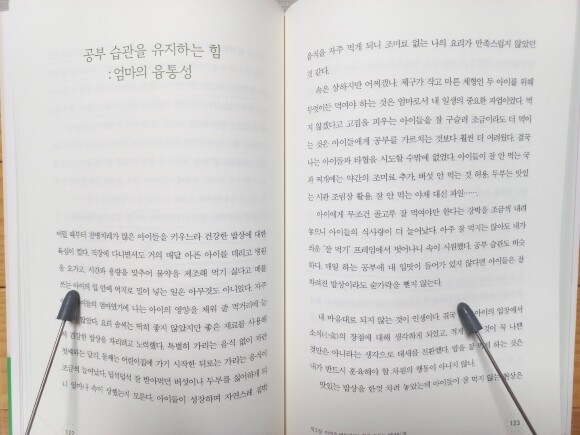 공부 습관을 유지하는 힘
:엄마의 융통성
어릴 때부터 잔병치레가 많은 아이들을 키우느라 건강한 밥상에 대한
욕심이 컸다. 직장에 다니면서도 거의 매달 아픈 아이를 데리고 병원
을 오가고, 시간과 용량을 맞추어 물약을 제조해 먹기 싫다고 떼를
쓰는 아이의 입 안에 억지로 밀어 넣는 일은 아무것도 아니었다. 자주
아이들의 엄마였기에 나는 아이의 영양을 채워 줄 먹거리에 늘
요리 솜씨는 딱히 좋지 않았지만 좋은 재료를 사용해
건강한 밥상을 차리려고 노력했다. 특별히 가리는 음식 없이 자란
첫째와는 달리, 둘째는 어린이집에 가기 시작한 뒤로는 가리는 음식이
조금씩 늘어났다. 넙죽넙죽 잘 받아먹던 버섯이나 두부를 싫어하게 되
니 얼마나 속이 상했는지 모른다. 아이들이 성장하며 자연스레 외박
122
음식을 자주 먹게 되니 조미료 없는 나의 요리가 만족스럽지 않았던
것 같다.
속은 상하지만 어쩌겠나. 체구가 작고 마른 체형인 두 아이를 위해
무엇이든 먹여야 하는 것은 엄마로서 내 일생의 중요한 과업이었다. 먹
지 않겠다고 고집을 피우는 아이들을 잘 구슬려 조금이라도 더 먹이
는 것은 아이들에게 공부를 가르치는 것보다 훨씬 더 어려웠다. 결국
나는 아이들과 타협을 시도할 수밖에 없었다. 아이들이 잘 안 먹는 국
과 찌개에는 약간의 조미료 추가, 버섯 안 먹는 것 허용, 두부는 맛있
는 시판 조림장 활용, 잘 안 먹는 야채 대신 과일……
아이에게 무조건 골고루 잘 먹여야만 한다는 강박을 조금씩 내려
놓으니 아이들의 식사량이 더 늘어났다. 아주 잘 먹지는 않아도 내가
씌운 '잘 먹기' 프레임에서 벗어나니 속이 시원했다. 공부 습관도 비슷
하다. 매일 하는 공부에 내 입맛이 들어가 있지 않다면 아이들은 잘
차려진 밥상이라도 숟가락을 뻗지 않는다.
내 마음대로 되지 않는 것이 인생이다. 결국 아이의 입장에서
소식(小食)의 장점에 대해 생각하게 되었고, 적게 것이 꼭 나쁜
것만은 아니라는 생각으로 태세를 전환했다. 밥을 잘 먹게 하는 것은
내가 반드시 훈육해야 할 차원의 행동이 아니지 않나.
맛있는 밥상을 한껏 차려 놓았는데 아이들이 잘 먹지 않는 현상은
123